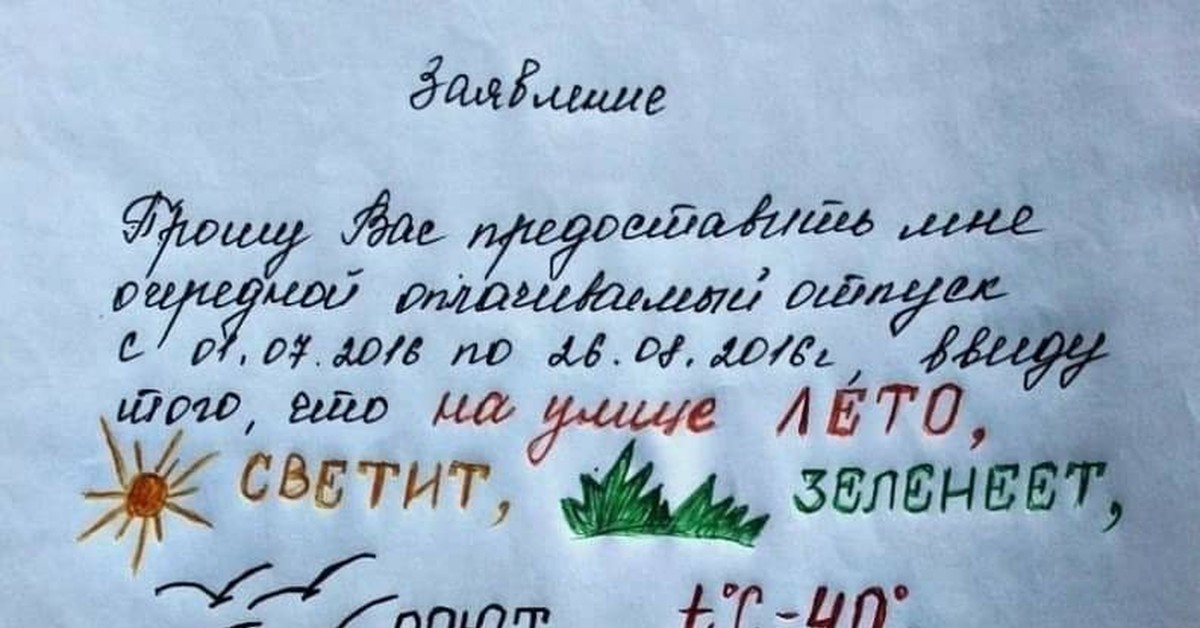 Заявление
Прошу Вас предоставить мне
очередной оплачиваемый отпуск
с 01.07.2016 по 26.08.2016г, ввиду
того, что на улице ЛЕ́ТО,
СВЕТИТ, ЗЕЛЕНЕЕТ,
поют t°C-40°